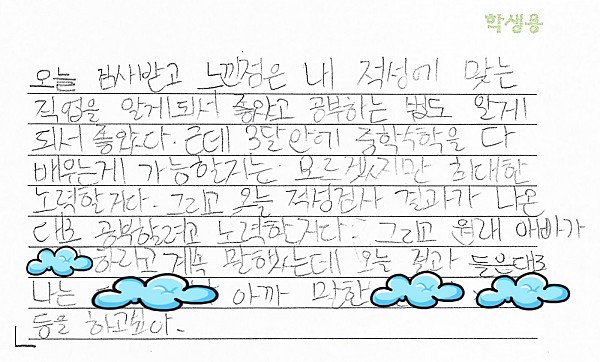 학생용
오늘 검사받고 느낀점은 내 적성에 맞는
직업을 알게되서 좋았고 공부하는 법도 알게
되서 좋았다. 근데 3달안에 중학수학을 다
배우는게 가능할지는 모르겠지만 최대한
노력할거다. 그리고 오늘 적성검사 결과가 나온
대로 공부할려고 노력할거다. 그리고 원래 아빠가
하라고 계속 말했는데 오늘 결과 들은대로
나는 아까 말한
등을 하고싶다.